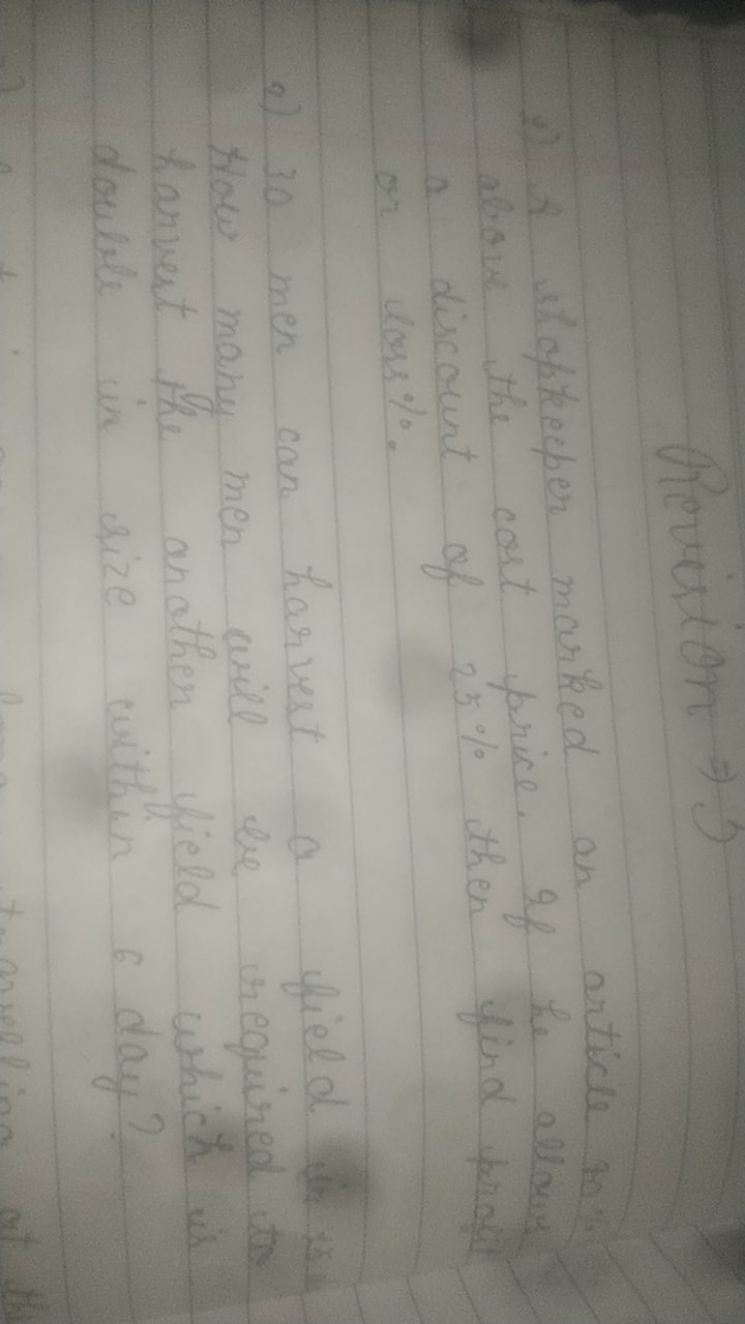 Revision → 5
1) A shopkeeper marked an article
above the cost price. If he allows
a discount of 25% then find profit
or loss%.
2) 30 men can harvest a field in
How many men will be required to
harvest the another field which is
double in size within 6 day?
travelling at the